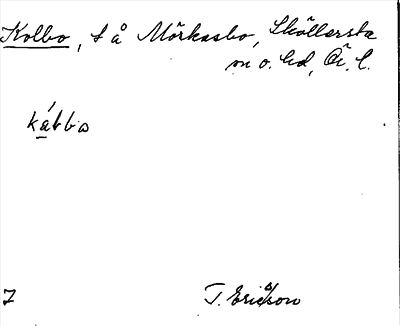 Kolbo, t å Mörkasbo, Sköllersta
sn o. hd, Ör. l.
kábbo
J
T. Ericsson